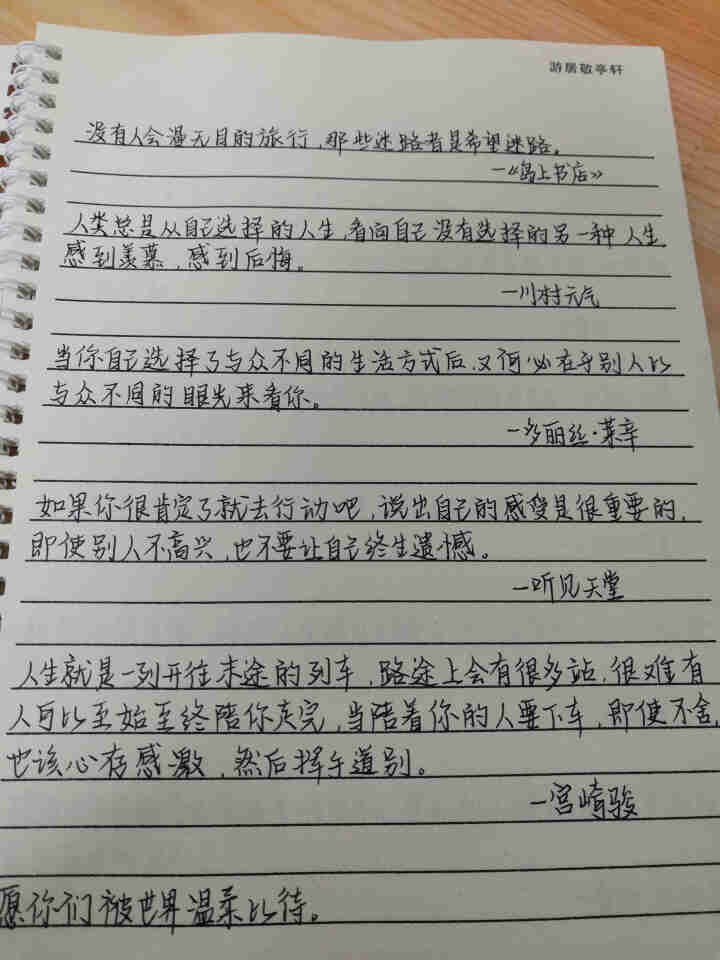 游居敬亭轩
没有人会漫无目的旅行,那些迷路者是希望迷路。
—《岛上书店》
人类总是从自己选择的人生,看向自己没有选择的另一种人生,
感到羡慕,感到后悔。
—川村元气
当你自己选择了与众不同的生活方式后,又何必在乎别人以
与众不同的眼光来看你。
—多丽丝·莱辛
如果你很肯定了就去行动吧,说出自己的感受是很重要的,
即使别人不高兴,也不要让自己终生遗憾。
—听见天堂
人生就是一列开往末途的列车,路途上会有很多站,很难有
人可以至始至终陪你走完,当陪着你的人要下车,即使不舍,
也该心存感激,然后挥手道别。
—宫崎骏
愿你们被世界温柔以待。